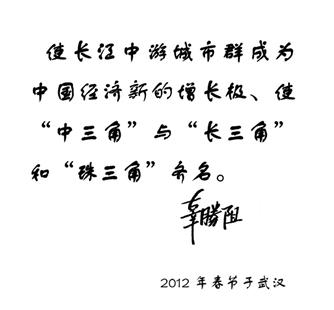 使长江中游城市群成为
中国经济新的增长极、使
“中三角”与“长三角”
和“珠三角”齐名。
辜胜阻
2012年春节于武汉